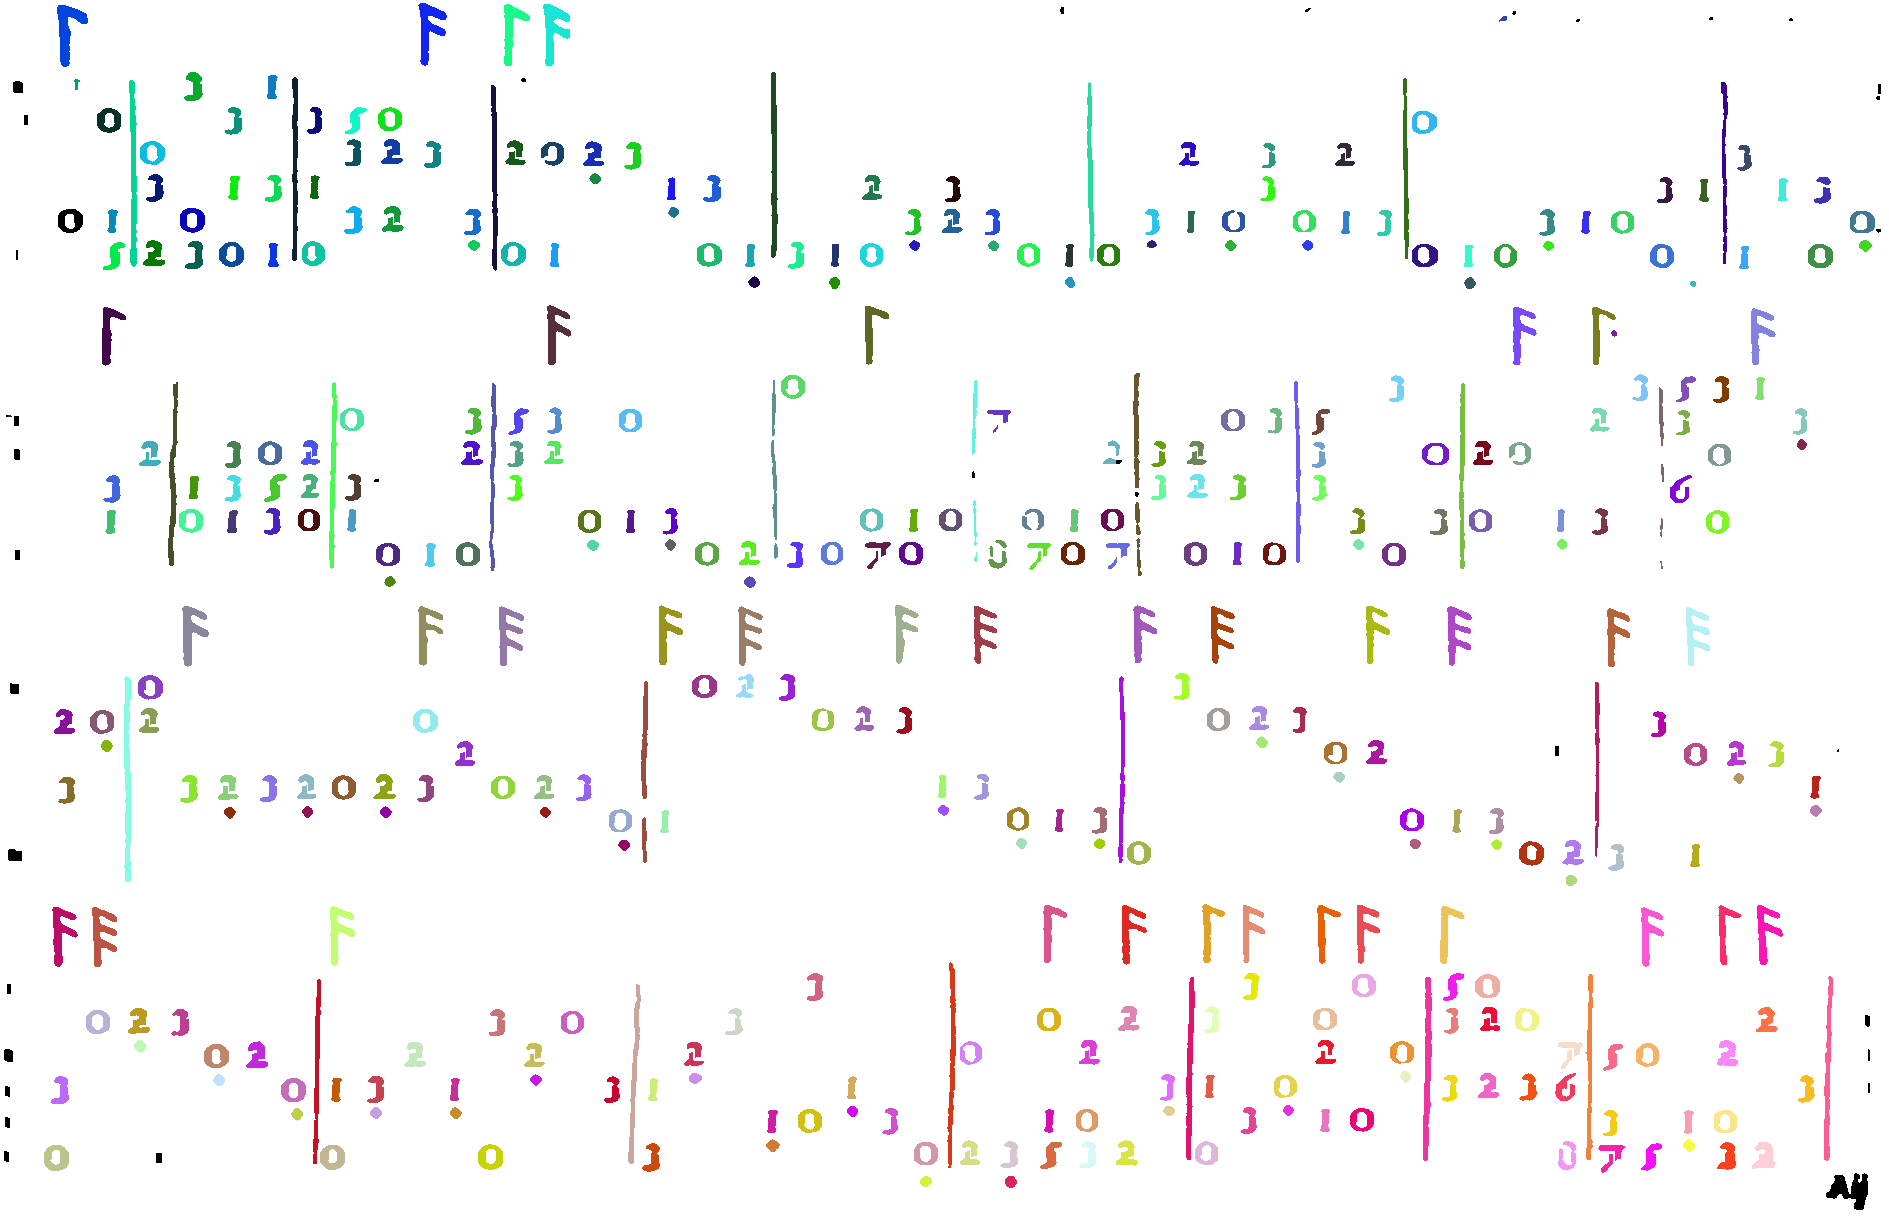 3 1
0 3 3 5 0 0
0 3 2 3 2 0 2 3 2 3 2 3
3 1 3 1 1 3 2 3 3 3 1 1 3
0 1 0 3 2 3 3 2 3 3 1 0 0 1 3 3 1 0 0
5 2 3 0 1 0 0 1 0 1 3 1 0 0 1 0 0 1 0 0 1 0
0 3 3 5 3 1
0 3 5 3 0 7 0 3 5 2 3 3
2 3 0 2 2 3 2 2 3 2 3 0 2 0 0
3 1 3 5 2 3 3 3 2 3 3 6
1 0 1 3 0 1 0 1 3 0 1 0 0 1 0 3 3 0 1 3 0
0 1 0 0 2 3 0 7 0 0 7 0 7 0 1 0 0
0 0 2 3 3
2 0 2 0 0 2 3 0 2 3 3
2 0 2 0 2 3
3 3 2 3 2 0 2 3 0 2 3 1 3 1
0 1 0 1 3 0 1 3
0 0 2 3 1
3 3 0 5 0
0 2 3 3 0 3 0 2 3 0 3 2 0 2
0 2 2 2 2 0 2 2 0 7 5 0 2
3 0 1 3 1 3 1 1 3 1 0 3 2 3 6 3
1 0 3 1 0 3 1 0 3 1 0
0 0 0 3 0 2 3 5 3 2 0 0 7 5 3 2